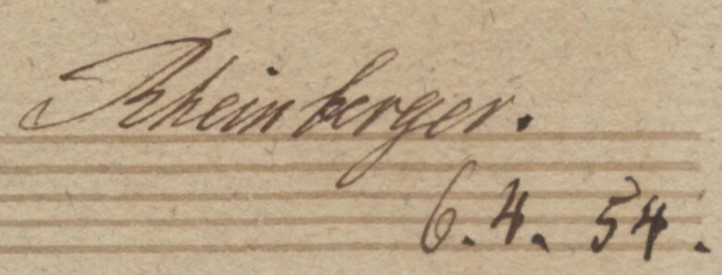 Rheinberger.
6.4. 54.